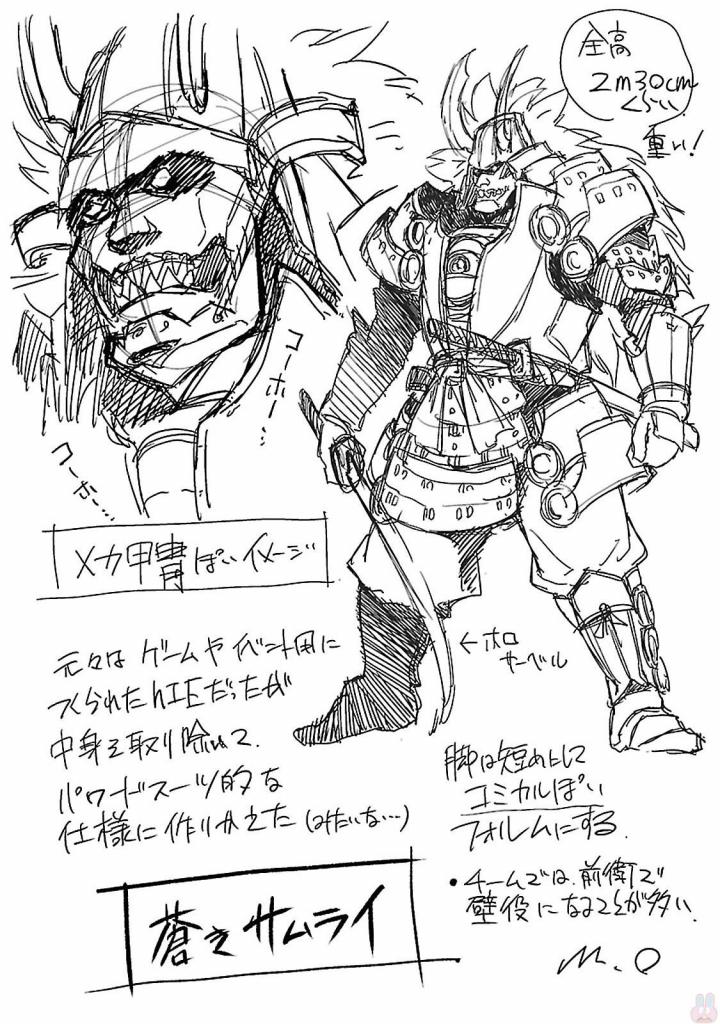 全高
2m30cm
くらい
重い!
コーホー…
コーホー…
メカ甲冑ぽいイメージ
←ホロ
サーベル
元々はゲームやイベント用に
つくられたhIEだったが
中身を取り除いて、
パワードスーツ的な
仕様に作りかえた(みたいな…)
脚は短めにして
コミカルぽい
フォルムにする。
・チームでは、前衛で
壁役になることが多い。
蒼きサムライ
M.O